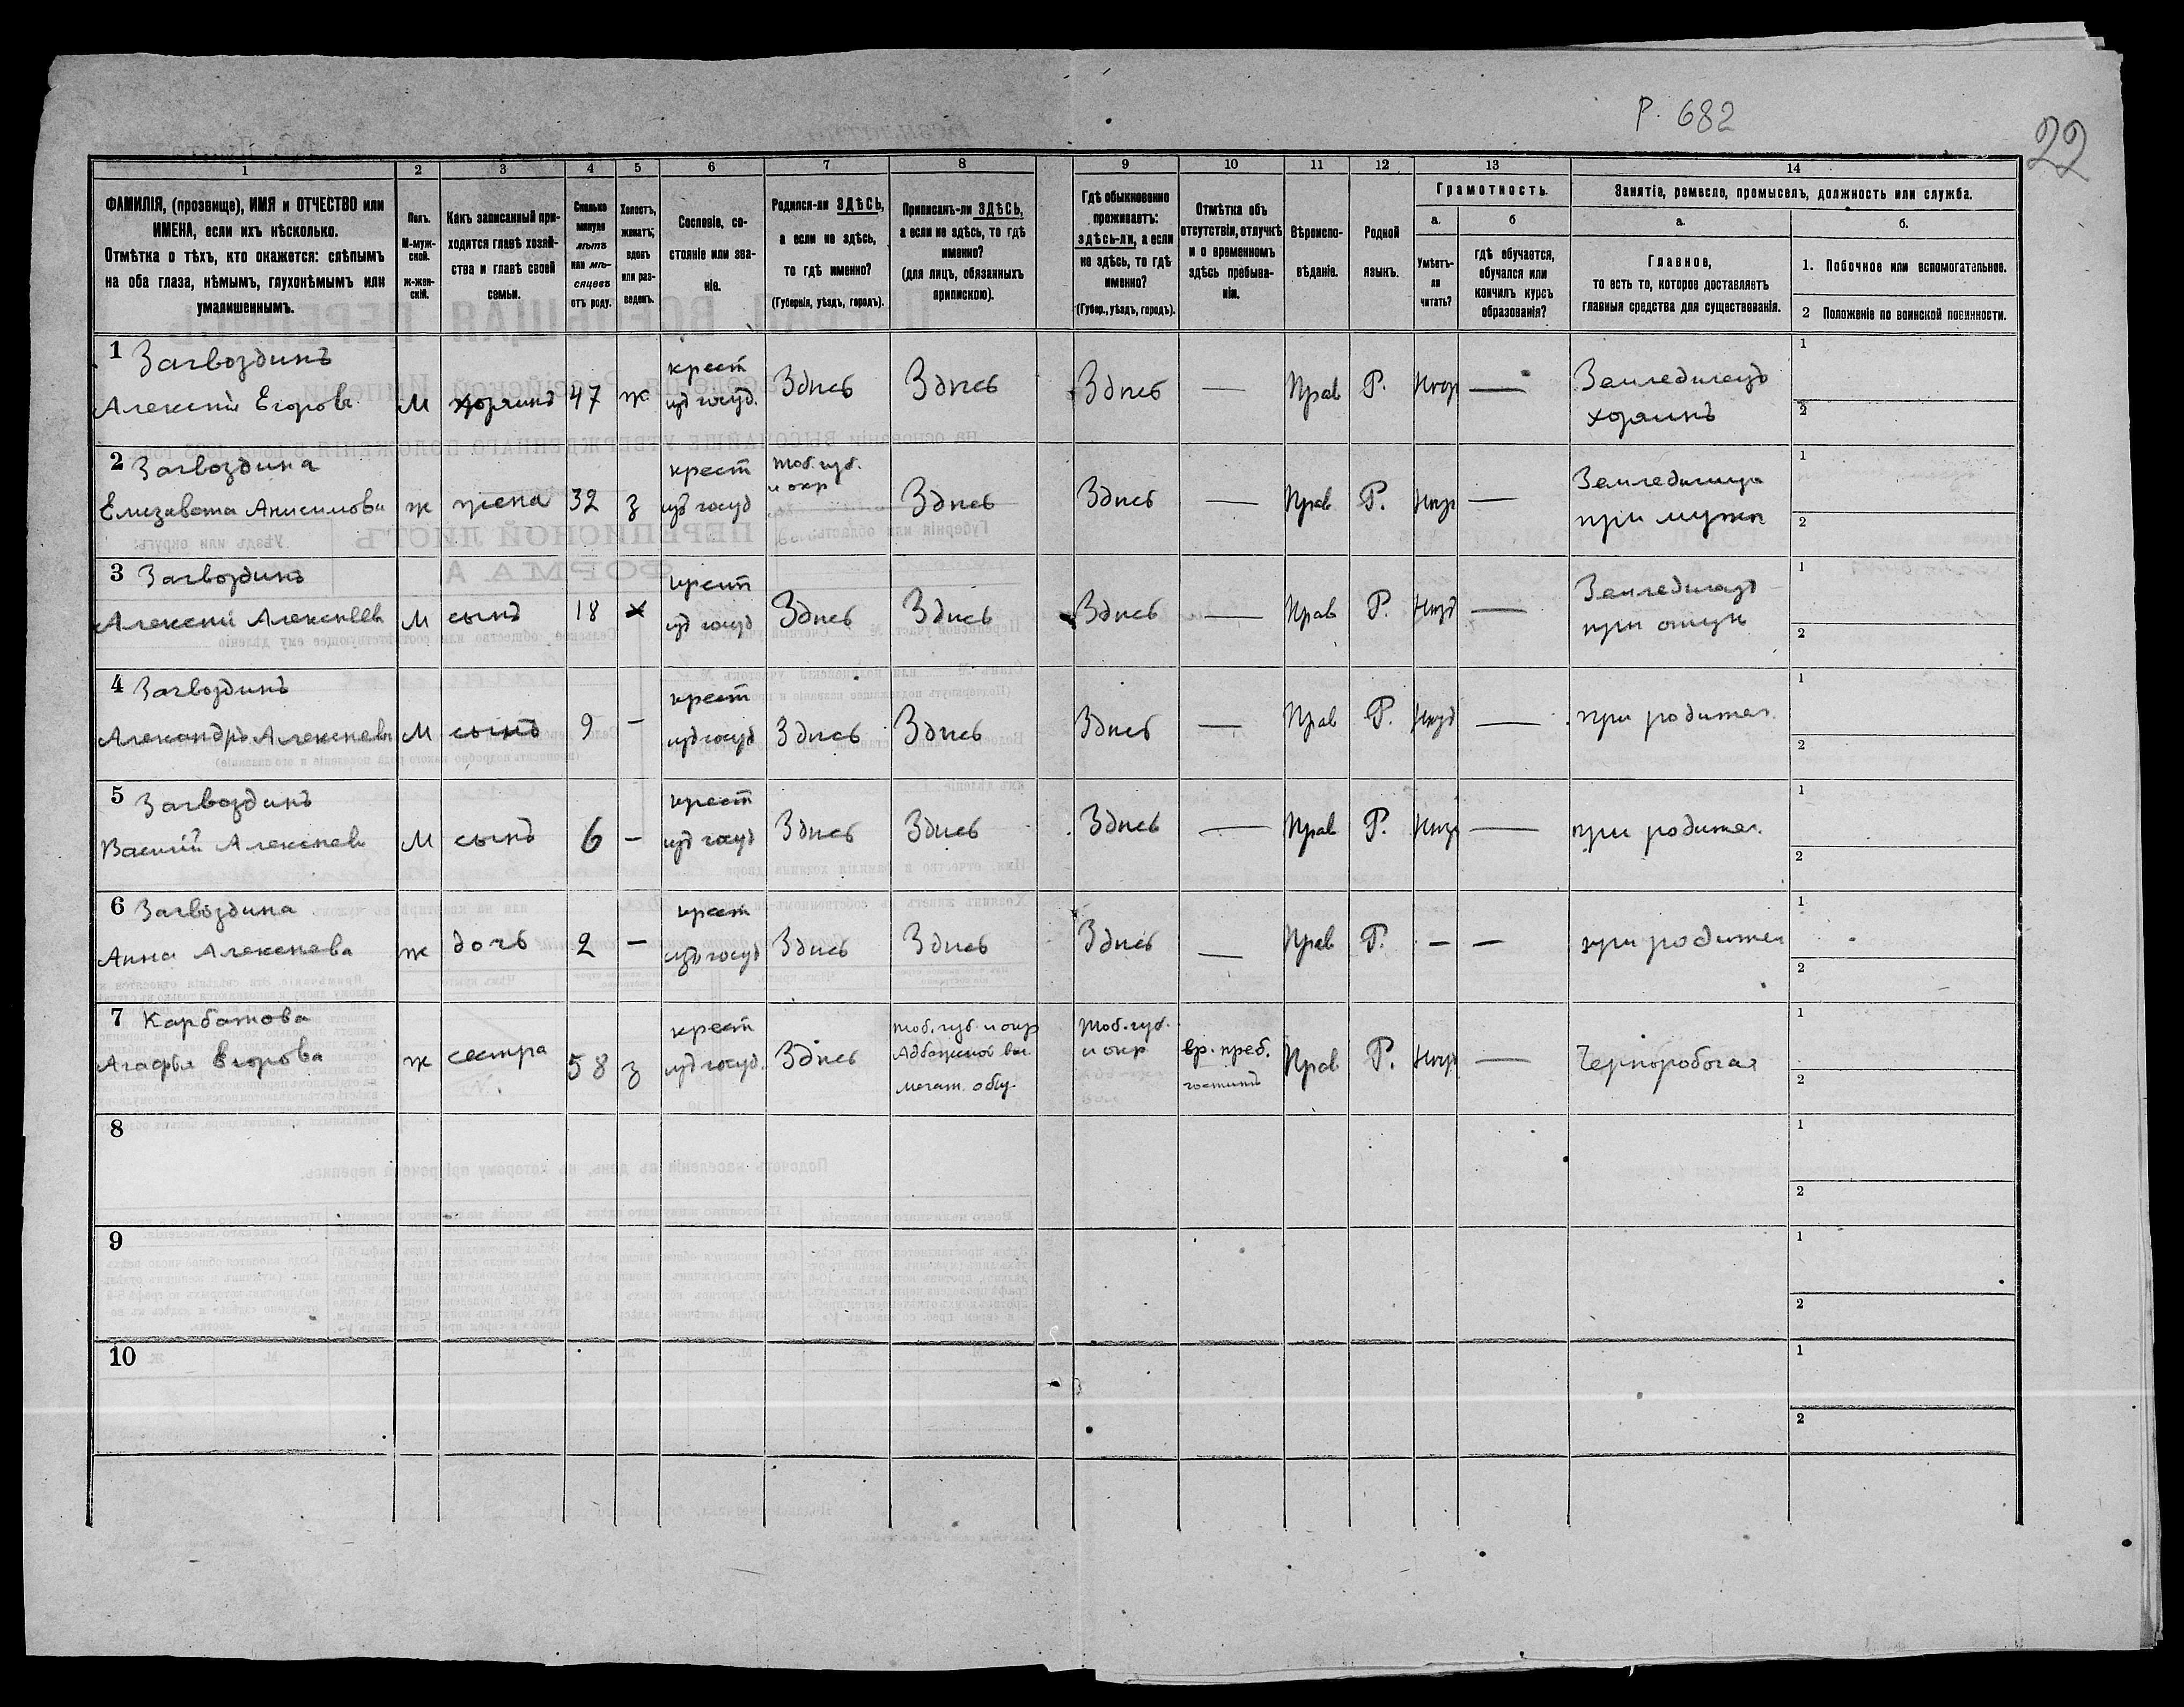 Р. 682
22
1 2 3 4 5 6 7 8 9 10 11 12 13 14
ФАМИЛІЯ, (прозвище), ИМЯ и ОТЧЕСТВО или
ИМЕНА, если ихъ нѣсколько.
Отмѣтка о тѣхъ, кто окажется: слѣпымъ
на оба глаза, нѣмымъ, глухонѣмымъ или
умалишеннымъ.
Полъ.
М-муж-
ской.
ж-жен-
скій.
Какъ записанный при-
ходится главѣ хозяй-
ства и главѣ своей
семьи.
Сколько
минуло
лѣтъ
или мѣ-
сяцевъ
отъ роду.
Холостъ,
женатъ,
вдовъ
или раз-
веденъ.
Сословіе, со-
стояніе или зва-
ніе.
Родился-ли ЗДѢСЬ,
а если не здѣсь,
то гдѣ именно?
(Губернія, уѣздъ, городъ).
Приписанъ-ли ЗДѢСЬ,
а если не здѣсь, то гдѣ
именно?
(для лицъ, обязанныхъ
припискою).
Гдѣ обыкновенно
проживаетъ:
здѣсь-ли, а если
не здѣсь, то гдѣ
именно?
(Губер., уѣздъ, городъ).
Отмѣтка объ
отсутствіи, отлучкѣ
и о временномъ
здѣсь пребыва-
ніи.
Вѣроиспо-
вѣданіе.
Родной
языкъ.
Грамотность.
а.
Умѣетъ-
ли
читать?
б
гдѣ обучается,
обучался или
кончилъ курсъ
образованія?
Занятіе, ремесло, промыселъ, должность или служба.
а.
Главное,
то есть то, которое доставляетъ
главныя средства для существованія.
б.
1. Побочное или вспомогательное.
2 Положеніе по воинской повинности.
1 Загвоздинъ
Алексѣй Егоровъ М хозяинъ 47 ж
крест
изъ госуд.
Здѣсь Здѣсь Здѣсь — Прав Р. —
Земледѣлецъ
хозяинъ
1
2
2 Загвоздина
Елизавета Анисимова ж жена 32 з
крест
изъ госуд
Тоб. губ.
и окр
Здѣсь Здѣсь — Прав Р. —
при мужѣ
1
2
3 Загвоздинъ
Алексѣй Алексѣевъ М сынъ 18 х
крест
изъ госуд
Здѣсь Здѣсь Здѣсь — Прав Р. —
Земледѣлецъ
при отцѣ
1
2
4 Загвоздинъ
Александръ Алексѣевъ М сынъ 9 -
крест
изъ госуд
Здѣсь Здѣсь Здѣсь — Прав Р. —
при родител.
1
2
5 Загвоздинъ
Василій Алексѣевъ М сынъ 6 -
крест
изъ госуд
Здѣсь Здѣсь Здѣсь — Прав Р. —
при родител.
1
2
6 Загвоздина
Анна Алексѣева ж дочь 2 -
крест
изъ госуд
Здѣсь Здѣсь Здѣсь — Прав Р. — —
при родител
1
2
7 Карбатова
Агафья Егорова ж сестра 58 з
крест
изъ госуд.
Здѣсь
Тоб. губ. и окр
Адбажской вол.
общ.
Тоб. губ.
и окр
вр. преб.
гоститъ
Прав Р. —
Чернорабочая
1
2
8
1
2
9
1
2
10
1
2